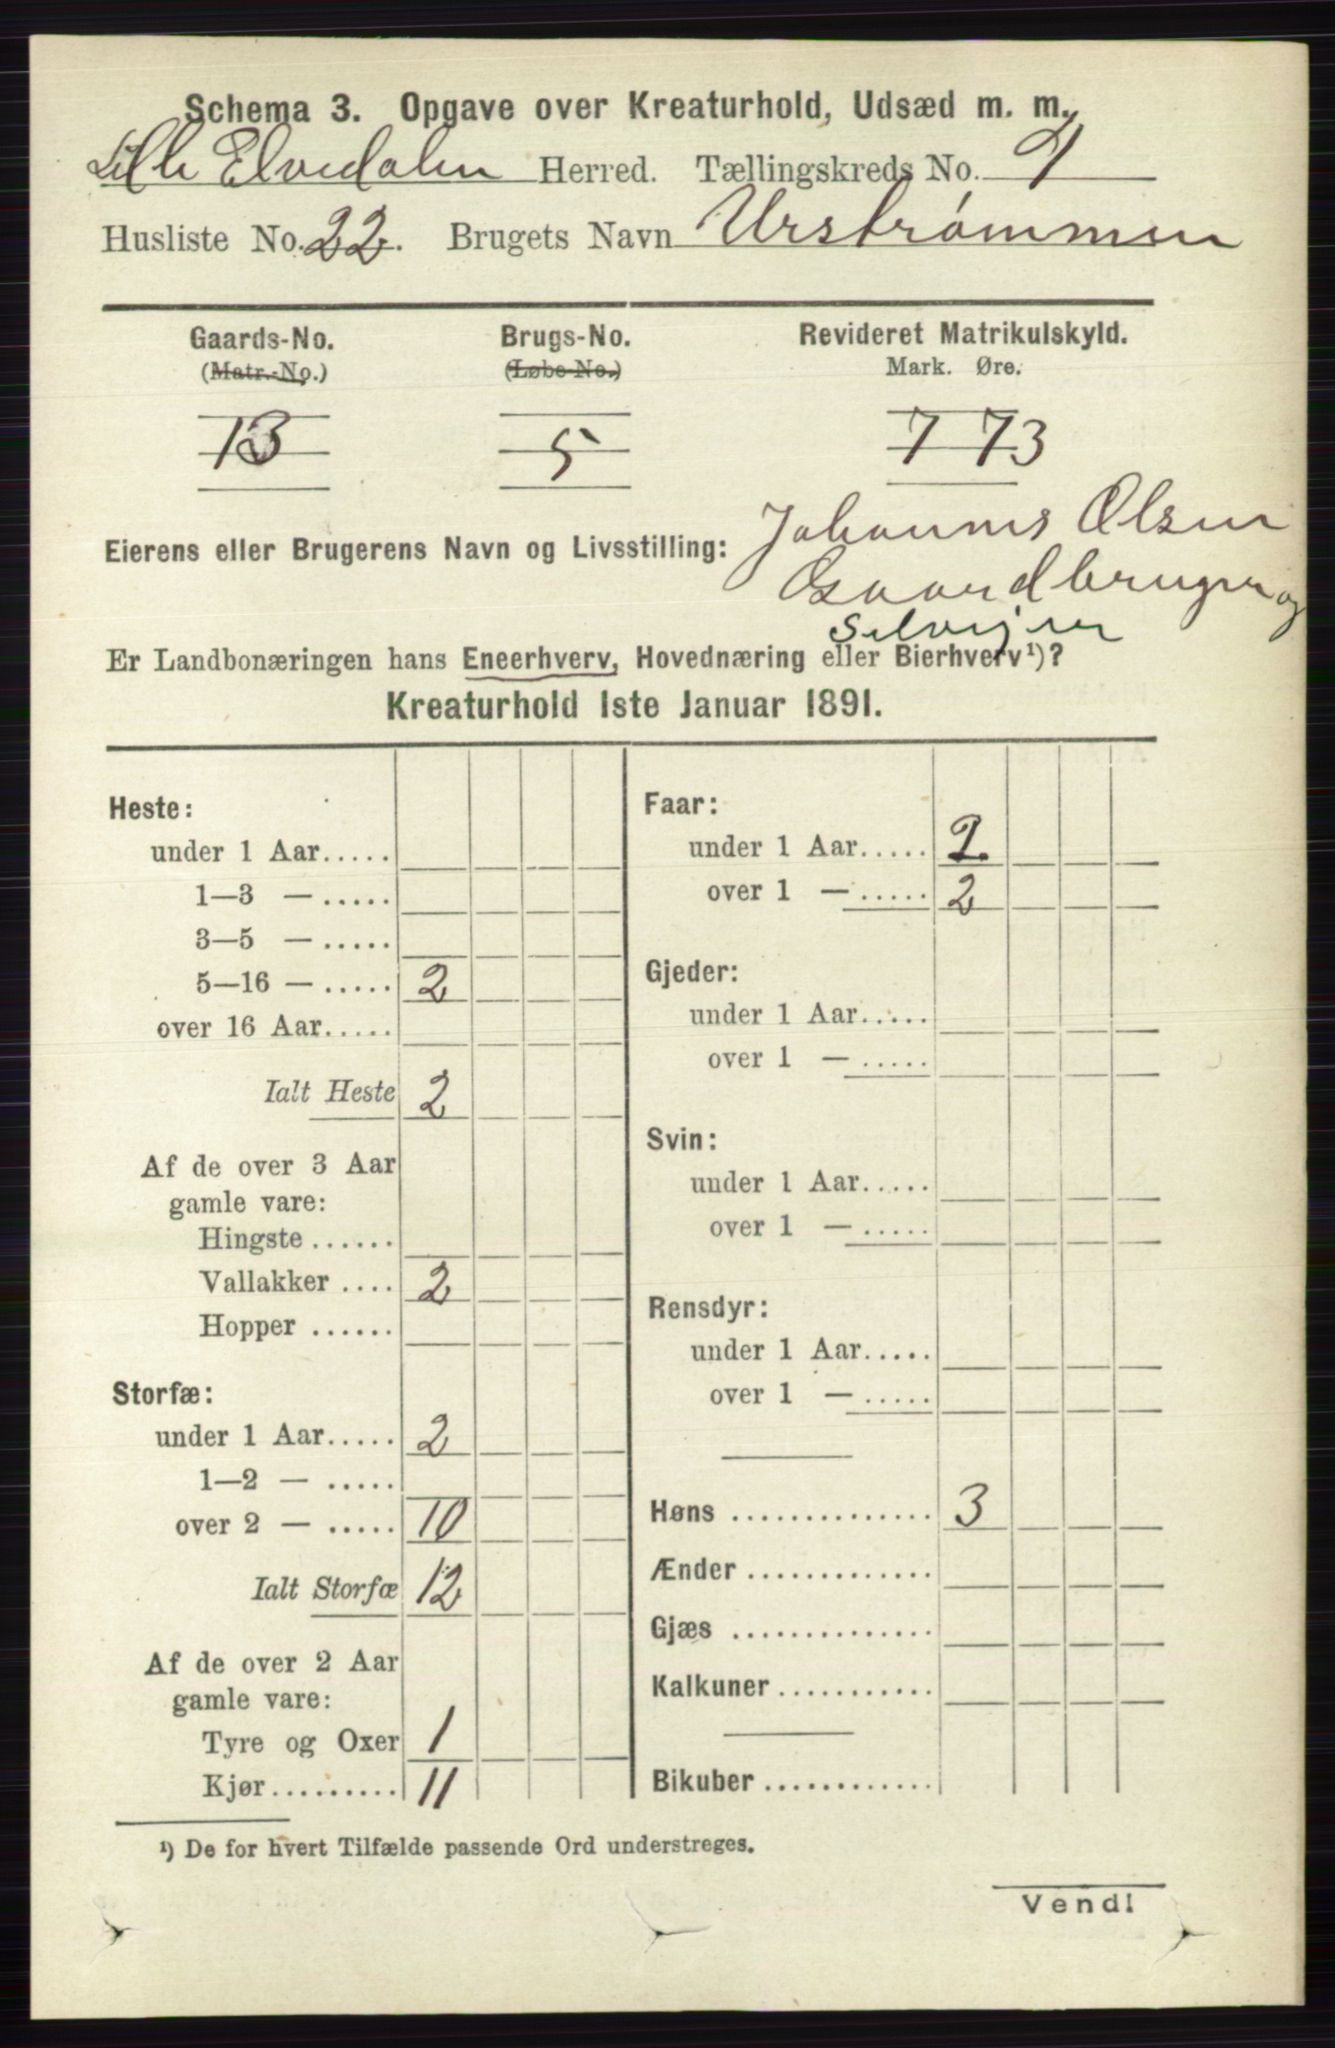 Schema 3. Opgave over Kreaturhold, Udsæd m. m.
Lille Elvedalen Herred. Tællingskreds No. 9
Husliste No. 22. Brugets Navn Urstrømmen
Gaards-No. Brugs-No. Revideret Matrikulskyld.
(Matr.-No.) (Løbe-No.) Mark. Øre.
13 5 7 73
Eierens eller Brugerens Navn og Livsstilling: Johannes Olsen
Gaardbruger og
Selvejer
Er Landbonæringen hans Eneerhverv, Hovednæring eller Bierhverv¹)?
Kreaturhold 1ste Januar 1891.
Heste:
under 1 Aar.....
1—3 — .....
3—5 — .....
5—16 — ..... 2
over 16 Aar.....
Ialt Heste 2
Af de over 3 Aar
gamle vare:
Hingste ......
Vallakker .... 2
Hopper ......
Storfæ:
under 1 Aar..... 2
1—2 — .....
over 2 — ..... 10
Ialt Storfæ 12
Af de over 2 Aar
gamle vare:
Tyre og Oxer 1
Kjør......... 11
Faar:
under 1 Aar..... 2
over 1 — ..... 2
Gjeder:
under 1 Aar.....
over 1 — .....
Svin:
under 1 Aar.....
over 1 — .....
Rensdyr:
under 1 Aar.....
over 1 — .....
Høns .............. 3
Ænder .............
Gjæs ..............
Kalkuner...........
Bikuber ............
¹) De for hvert Tilfælde passende Ord understreges.
Vend!